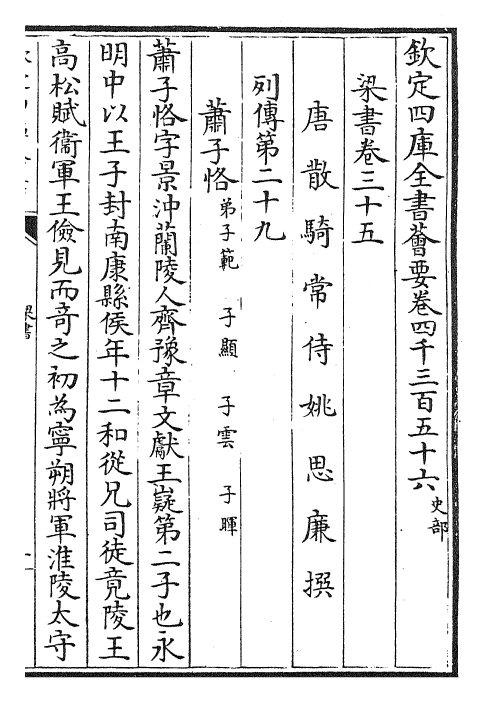 欽定四庫全書薈要卷四千三百五十六 史部
梁書卷三十五
唐散騎常侍姚思廉撰
列傳第二十九
蕭子恪 弟子範 子顯 子雲 子暉
蕭子恪字景沖蘭陵人齊豫章文獻王嶷第二子也永
明中以王子封南康縣侯年十二和從兄司徒竟陵王
高松賦衞軍王儉見而竒之初為寧朔將軍淮陵太守
梁書